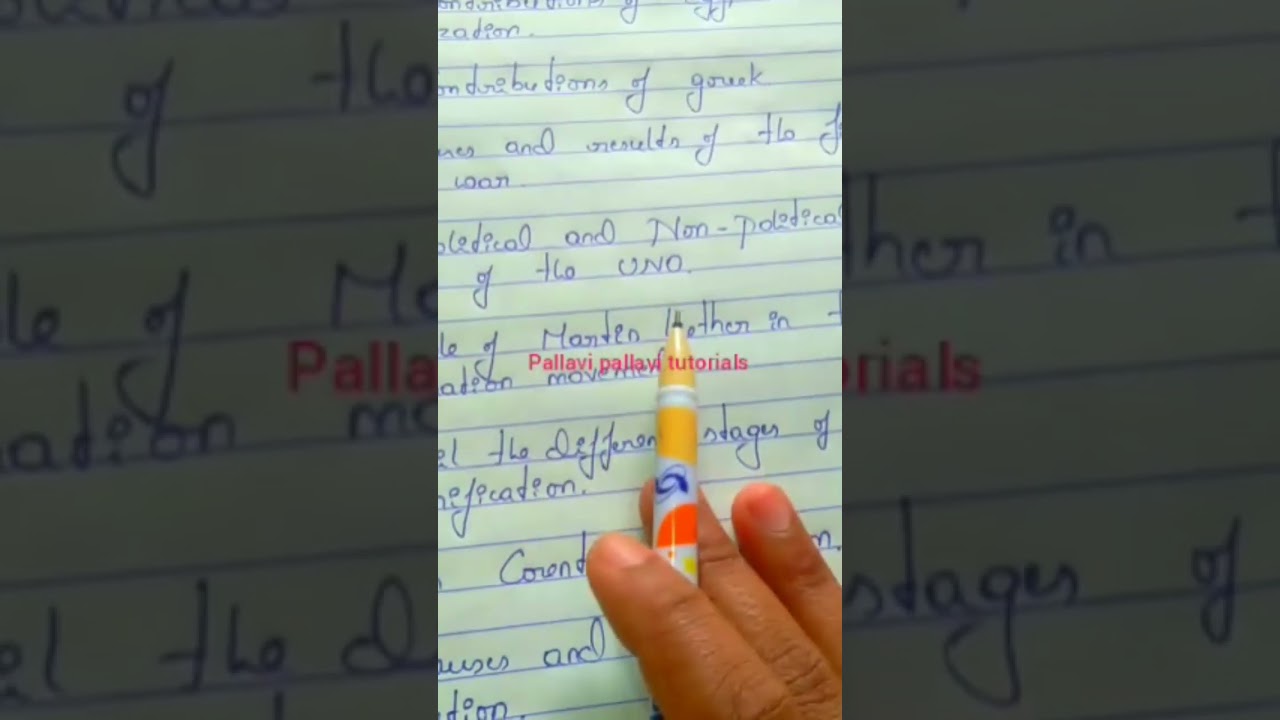 ontributions of
zation.
ontributions of greek
ses and results of the f
war.
olitical and Non-political
of the UNO.
le of Martin Luther in t
ation movement
el the different stages of
nification.
uses and
tion.
Pallavi pallavi tutorials